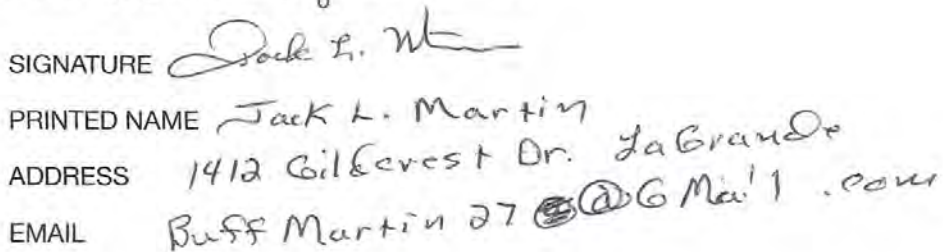 SIGNATURE Jack L. M
PRINTED NAME Jack L. Martin
ADDRESS 1412 Gilcrest Dr. LaGrande
EMAIL Buff Martin 27 @GMail.com